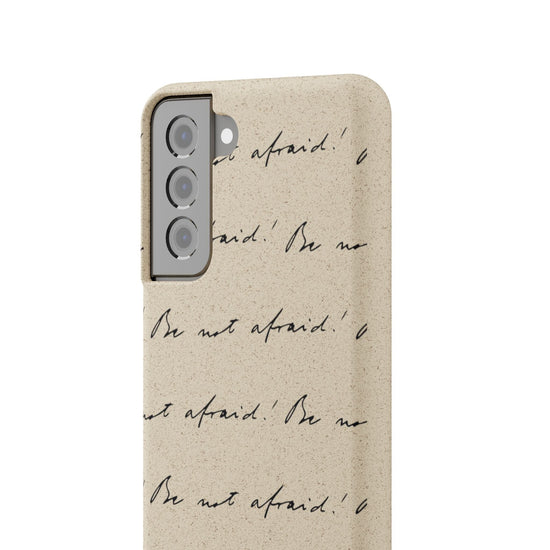 not afraid!
afraid! Be no
! Be not afraid!
not afraid! Be no
! Be not afraid!